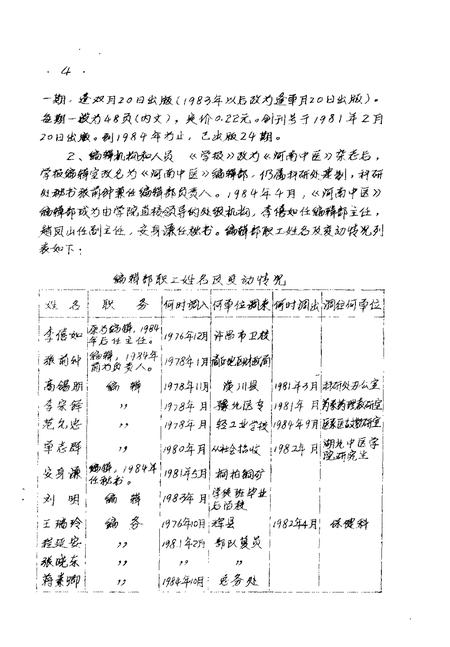 · 4 ·
一期，逢双月20日出版（1983年以后改为逢单月20日出版）。
每期一般为48页（内文），定价0.22元。创刊号于1981年2月
20日出版。到1984年为止，已出版24期。
2、编辑机构和人员 《学报》改为《河南中医》杂志后，
学报编辑室改名为《河南中医》编辑部，仍属科研处建制，科研
处秘书张前钟兼任编辑部负责人。1984年4月，《河南中医》
编辑部成为由学院直接领导的处级机构，李倍如任编辑部主任，
赵凤山任副主任，安身濂任秘书。编辑部职工姓名及变动情况列
表如下：
编辑部职工姓名及变动情况
姓名 职务 何时调入 何单位调来 何时调出 调往何单位
李倍如 原为编辑，1984年后任主任。 1976年12月 许昌市卫校
张前钟 编辑，1984年前为负责人。 1978年1月
高锡朋 编辑 1978年11月 潢川县 1981年3月 科研处办公室
〃 1978年 月 1981年 月
范允忠 〃 1978年 月 轻工业学校 1984年9月
单志群 〃 1980年 月 从社会招收 1982年 月 湖北中医学院研究生
安身濂 编辑，1984年任秘书。 1981年5月 桐柏铜矿
刘明 编辑 1983年 月 学徒班毕业后留校
王瑞玲 编务 1976年10月 辉县 1982年4月 保健科
程延安 〃 1981年2月 部队复员
张晓东 〃 〃 〃
蒋素卿 〃 1984年10月 总务处